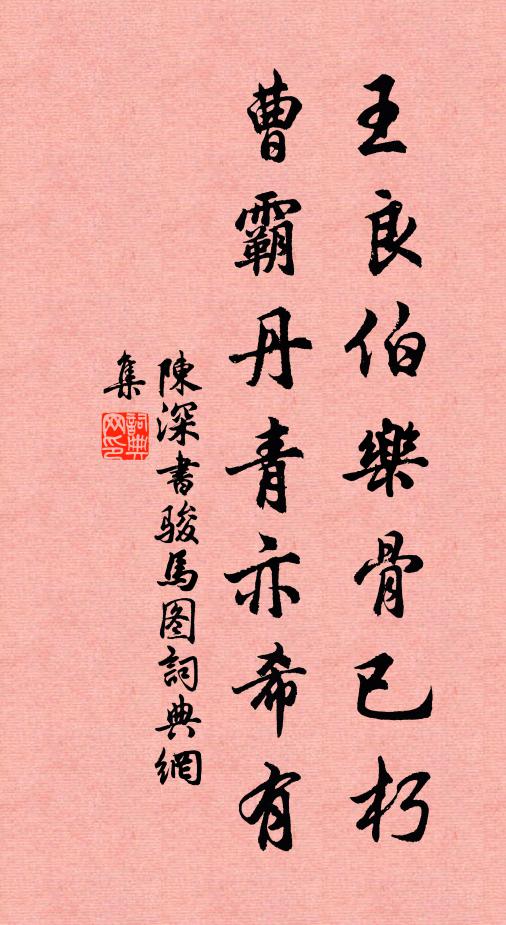 王良伯樂骨已朽
曹霸丹青亦希有
陳深書骏馬图詞典網
集
詞典
网印